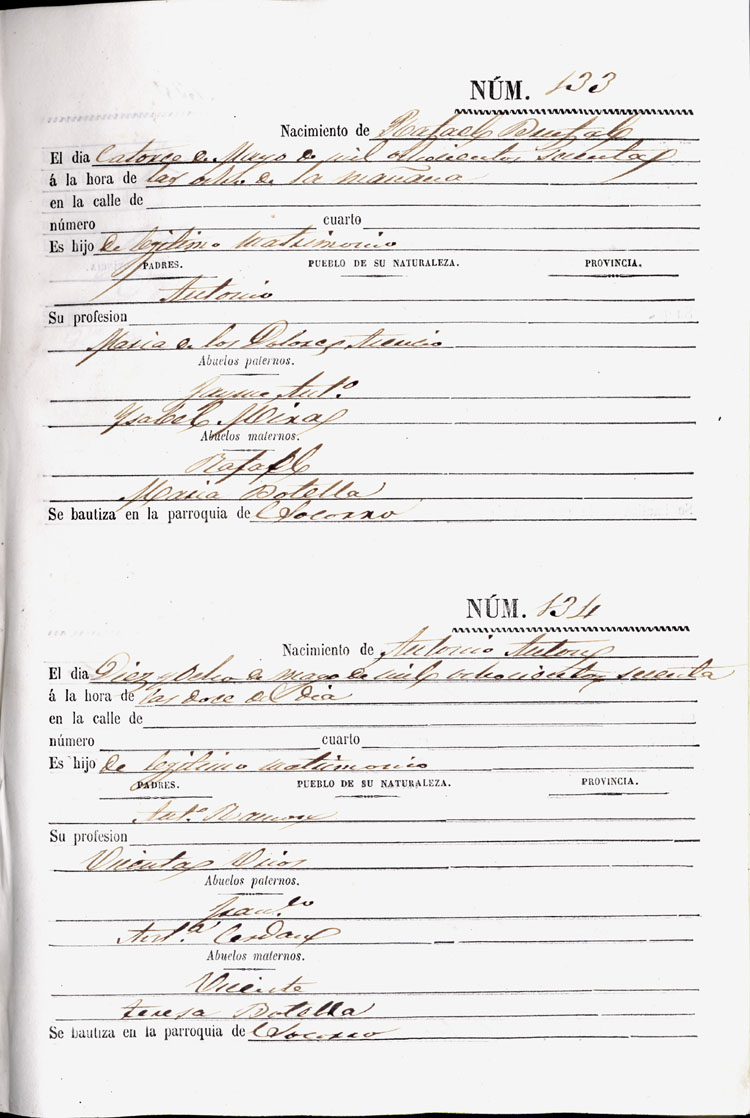 NÚM. 133
Nacimiento de Rafael
El dia Catorce de Mayo de mil ochocientos sesenta
á la hora de las ocho de la mañana
en la calle de
número cuarto
Es hijo de legitimo matrimonio
PADRES. PUEBLO DE SU NATURALEZA. PROVINCIA.
Antonio
Su profesion
Maria de los Dolores Asencio
Abuelos paternos.
Jayme Antº
Ysabel Mira
Abuelos maternos.
Rafael
Maria Botella
Se bautiza en la parroquia del Socorro
NÚM. 134
Nacimiento de Antonio Anton
El dia Diez y Ocho de mayo de mil ochocientos sesenta
á la hora de las doce del dia
en la calle de
número cuarto
Es hijo de legitimo matrimonio
PADRES. PUEBLO DE SU NATURALEZA. PROVINCIA.
Antº Ramon
Su profesion
Vicenta
Abuelos paternos.
Franco
Antª Cerdan
Abuelos maternos.
Vicente
Teresa Botella
Se bautiza en la parroquia del Socorro